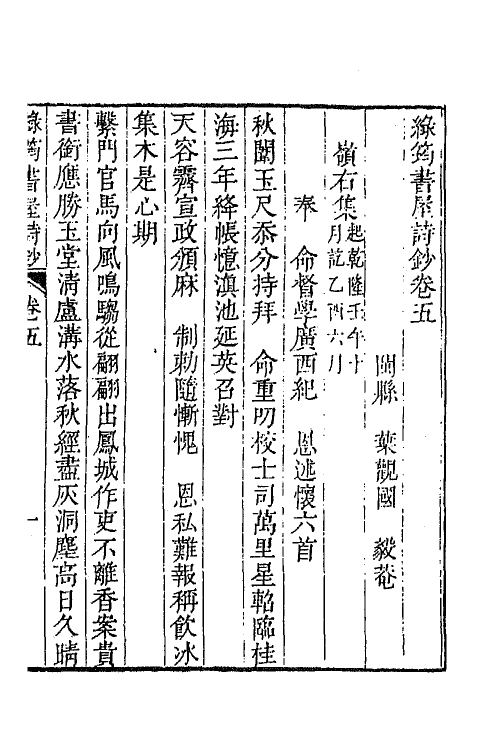 綠筠書屋詩鈔卷五
閩縣　葉觀國　毅菴
嶺右集起乾隆壬午十
月訖乙酉六月
奉　命督學廣西紀　恩述懷六首
秋闈玉尺忝分持拜　命重叨校士司萬里星軺臨桂
海三年絳帳憶滇池延英召對
天容霽宣政頒麻　制勅隨慚愧　恩私難報稱飲冰
集木是心期
繫門官馬向風鳴騶從翩翩出鳳城作吏不離香案貴
書銜應勝玉堂清盧溝水落秋經盡灰洞塵高日久晴
綠筠書屋詩鈔　卷五　一